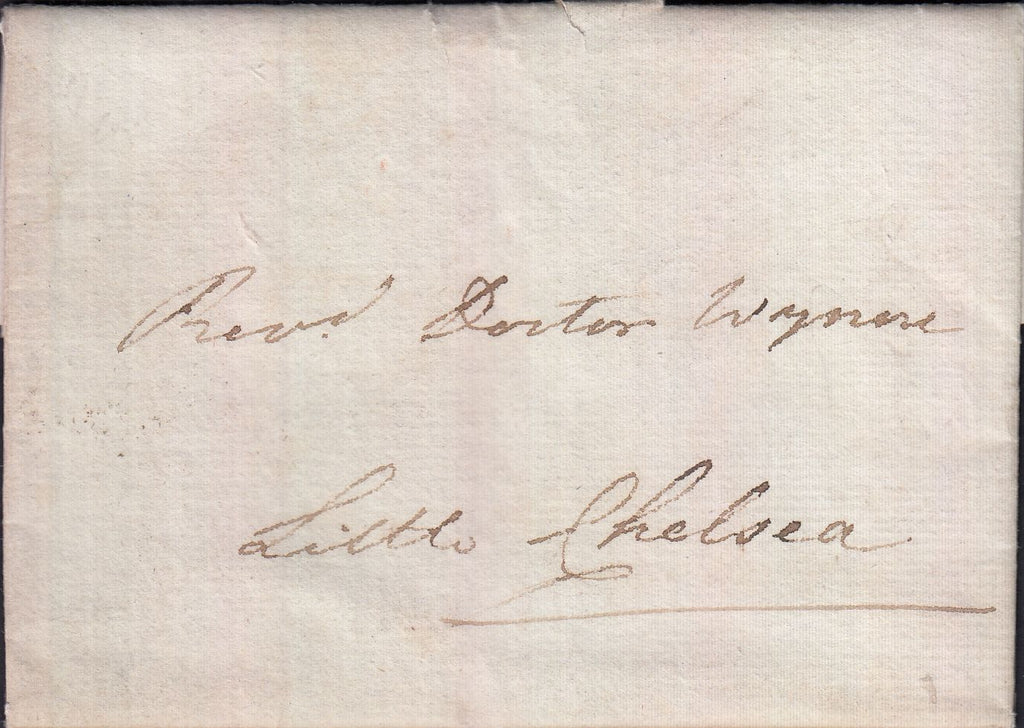 Revd. Doctor Wynne
Little Chelsea